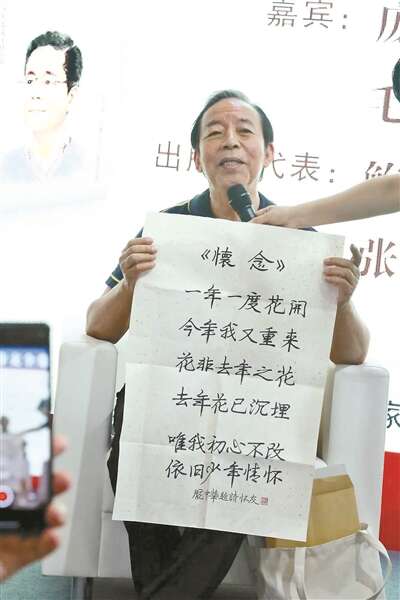 嘉宾：
出版 代表：
张
家
《懷念》
一年一度花開
今年我又重来
花非去年之花
去年花已沉埋
唯我初心不改
依旧少年情怀
庞中華题诗怀友